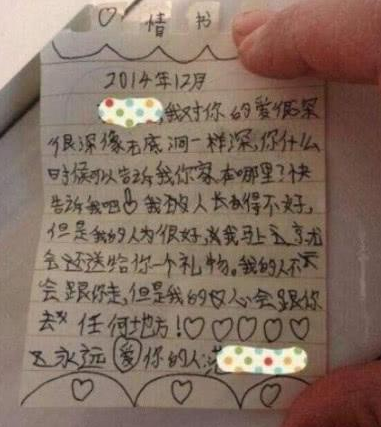 ♡ 情 书
2014年12月
我对你的爱很深
很深像无底洞一样深,你什么
时候可以告诉我你家在哪里?快
告诉我吧!我人长得不好,
但是我的人为很好,我马上
会还送给你一个礼物。我的人不
会跟你走,但是我的心会跟你
去 任何地方!♡♡♡♡♡
永远 爱你的人: